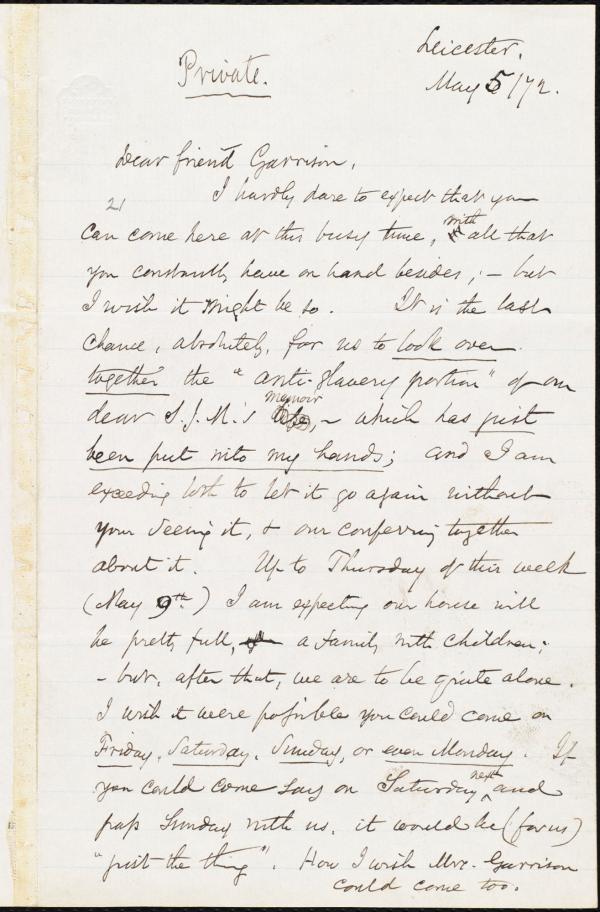 Leicester,
Private.
May 5/72.
Dear friend Garrison,
21
I hardly dare to expect that you
can come here at this busy time, with all that
you constantly have on hand besides; – but
I wish it might be so. It is the last
chance, absolutely, for us to look over
together the "anti-slavery portion" of our
dear S. J. M.'s memoir, – which has just
been put into my hands; and I am
exceeding loth to let it go again without
your seeing it, & our conferring together
about it. Up to Thursday of this week
(May 9th.) I am expecting our house will
be pretty full, a family with children;
– but, after that, we are to be quite alone.
I wish it were possible you could come on
Friday, Saturday, Sunday, or even Monday. If
you could come say on Saturday next and
pass Sunday with us, it would be (for us)
"just the thing". How I wish Mrs. Garrison
could come too.